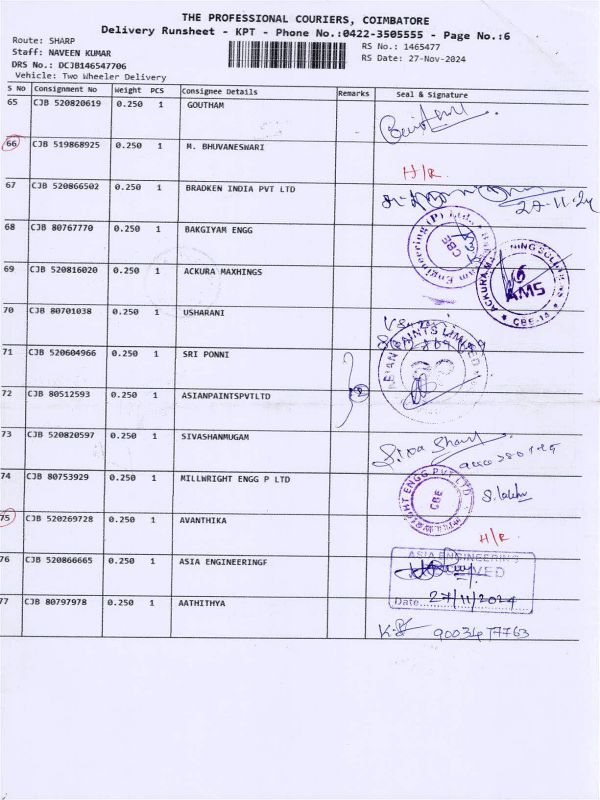 THE PROFESSIONAL COURIERS, COIMBATORE
Delivery Runsheet - KPT - Phone No.:0422-3505555 - Page No.:6
Route: SHARP
Staff: NAVEEN KUMAR
DRS No.: DCJB146547706
Vehicle: Two Wheeler Delivery
RS No.: 1465477
RS Date: 27-Nov-2024
S No Consignment No Weight PCS Consignee Details Remarks Seal & Signature
65 CJB 520820619 0.250 1 GOUTHAM
66 CJB 519868925 0.250 1 M. BHUVANESWARI H/R
67 CJB 520866502 0.250 1 BRADKEN INDIA PVT LTD 27-11-24
68 CJB 80767770 0.250 1 BAKGIYAM ENGG Engineering (P) Ltd. CBE
69 CJB 520816020 0.250 1 ACKURA MAXHINGS AMS CBE-14
70 CJB 80701038 0.250 1 USHARANI
71 CJB 520604966 0.250 1 SRI PONNI
72 CJB 80512593 0.250 1 ASIANPAINTSPVTLTD 2 ASIAN PAINTS LIMITED
73 CJB 520820597 0.250 1 SIVASHANMUGAM
74 CJB 80753929 0.250 1 MILLWRIGHT ENGG P LTD MILLWRIGHT ENGG PVT LTD CBE
75 CJB 520269728 0.250 1 AVANTHIKA H/R
76 CJB 520866665 0.250 1 ASIA ENGINEERINGF ASIA ENGINEERING
RECEIVED
Date 27/11/2024
77 CJB 80797978 0.250 1 AATHITHYA 90034 77763